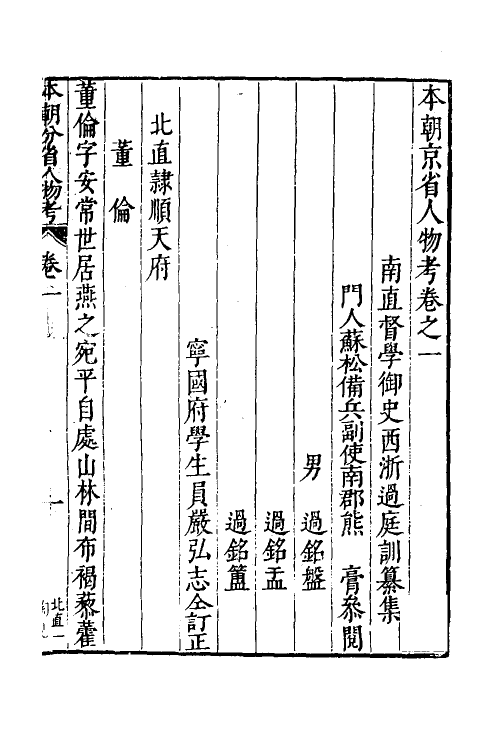 本朝京省人物考卷之一
南直督學御史西浙過庭訓纂集
門人蘇松備兵副使南郡熊　膏叅閱
男　過銘盤
過銘盂
過銘簠
寧國府學生員嚴弘志仝訂正
北直隸順天府
董倫
董倫字安常世居燕之宛平自處山林間布褐藜藿
本朝分省人物考　卷一　一　北直一